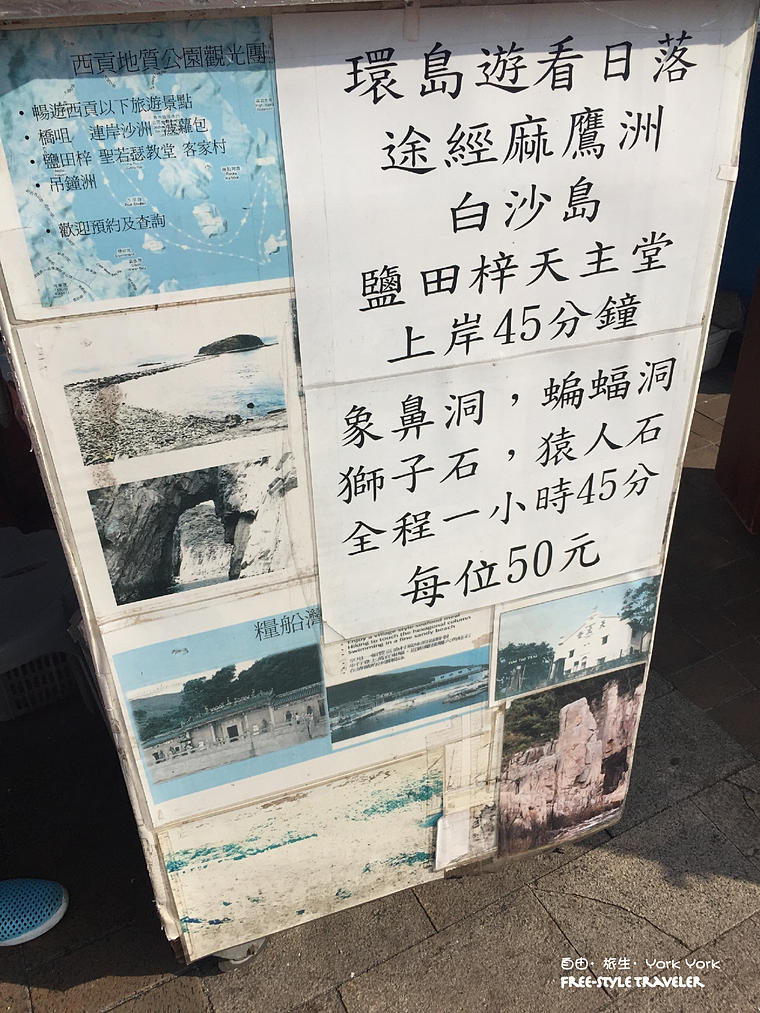 西貢地質公園觀光團
• 暢遊西貢以下旅遊景點
• 橋咀 連岸沙洲 菠蘿包
• 鹽田梓 聖若瑟教堂 客家村
• 吊鐘洲
• 歡迎預約及查詢
環島遊看日落
途經麻鷹洲
白沙島
鹽田梓天主堂
上岸45分鐘
象鼻洞，蝙蝠洞
獅子石，猿人石
全程一小時45分
每位50元
糧船灣
Enjoy a village style seafood meal
Hiking to touch the hexagonal column
Swimming in a fine sandy beach
自由·旅生·York York
FREE-STYLE TRAVELER